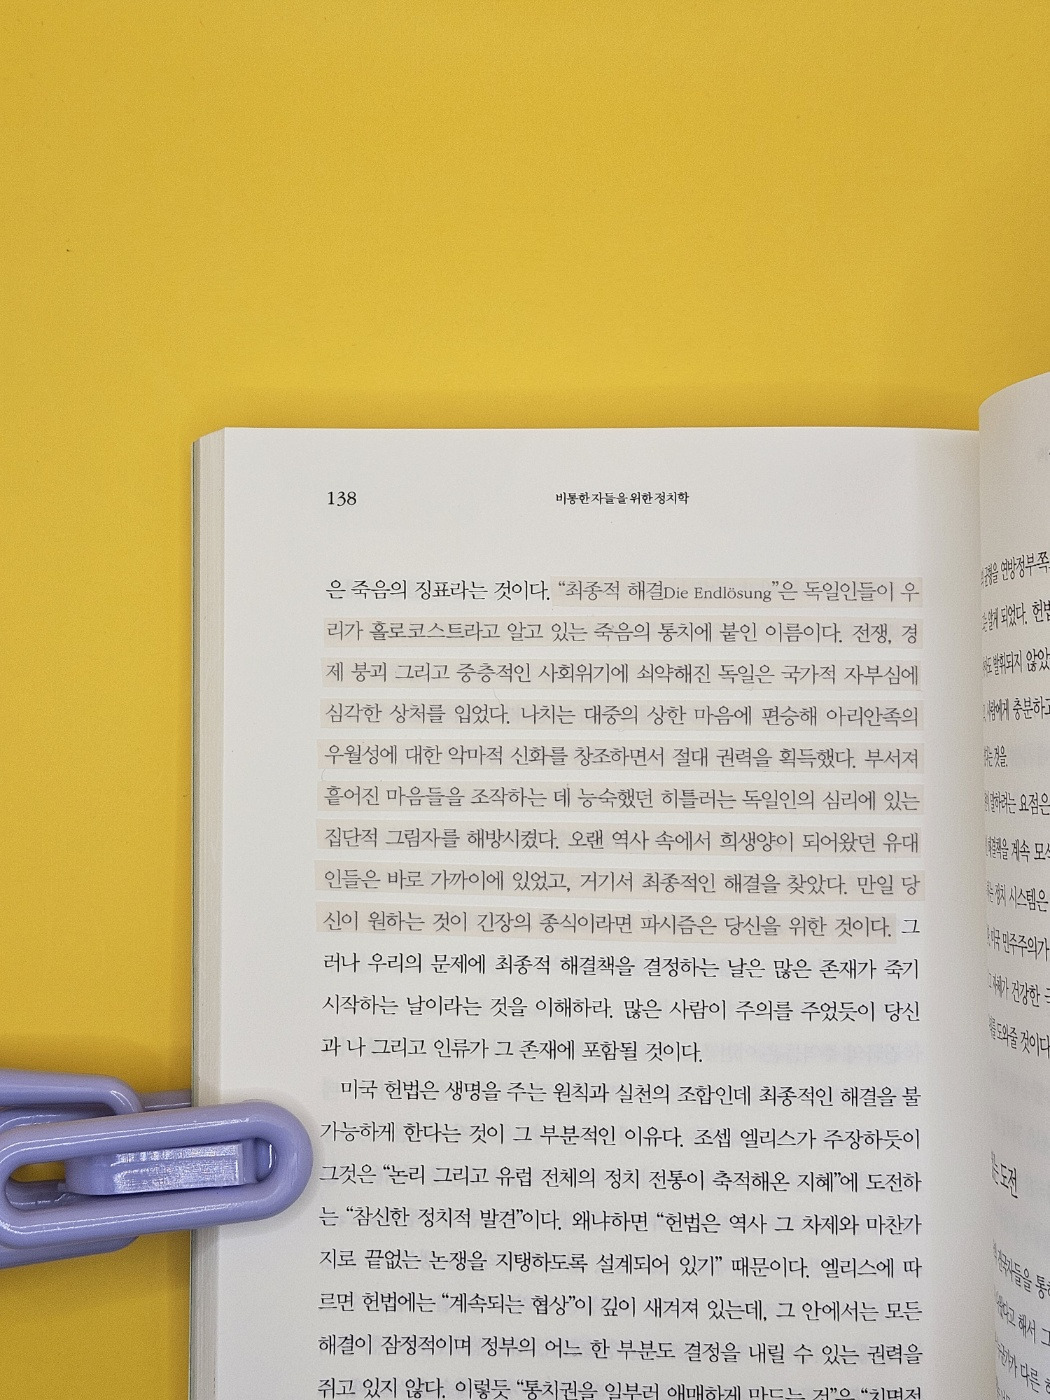 138
비통한 자들을 위한 정치학
은 죽음의 징표라는 것이다. “최종적 해결Die Endlösung”은 독일인들이 우
리가 홀로코스트라고 알고 있는 죽음의 통치에 붙인 이름이다. 전쟁, 경
제 붕괴 그리고 중층적인 사회위기에 쇠약해진 독일은 국가적 자부심에
심각한 상처를 입었다. 나치는 대중의 상한 마음에 편승해 아리안족의
우월성에 대한 악마적 신화를 창조하면서 절대 권력을 획득했다. 부서져
흩어진 마음들을 조작하는 데 능숙했던 히틀러는 독일인의 심리에 있는
집단적 그림자를 해방시켰다. 오랜 역사 속에서 희생양이 되어왔던 유대
인들은 바로 가까이에 있었고, 거기서 최종적인 해결을 찾았다. 만일 당
신이 원하는 것이 긴장의 종식이라면 파시즘은 당신을 위한 것이다. 그
러나 우리의 문제에 최종적 해결책을 결정하는 날은 많은 존재가 죽기
시작하는 날이라는 것을 이해하라. 많은 사람이 주의를 주었듯이 당신
과 나 그리고 인류가 그 존재에 포함될 것이다.
미국 헌법은 생명을 주는 원칙과 실천의 조합인데 최종적인 해결을 불
가능하게 한다는 것이 그 부분적인 이유다. 조셉 엘리스가 주장하듯이
그것은 “논리 그리고 유럽 전체의 정치 전통이 축적해온 지혜”에 도전하
는 “참신한 정치적 발견”이다. 왜냐하면 “헌법은 역사 그 차제와 마찬가
지로 끝없는 논쟁을 지탱하도록 설계되어 있기” 때문이다. 엘리스에 따
르면 헌법에는 “계속되는 협상”이 깊이 새겨져 있는데, 그 안에서는 모든
해결이 잠정적이며 정부의 어느 한 부분도 결정을 내릴 수 있는 권력을
쥐고 있지 않다. 이렇듯 “통치권을 일부러 애매하게 만드는 것”은 “치명적
연방정부쪽
알게 되었다. 헌법
발휘되지 않았
충분하고
것을.
말하려는 요점은
계속 모색
정치 시스템은
미국 민주주의가
건강한
도와줄 것이다
도전
해서 그
다른